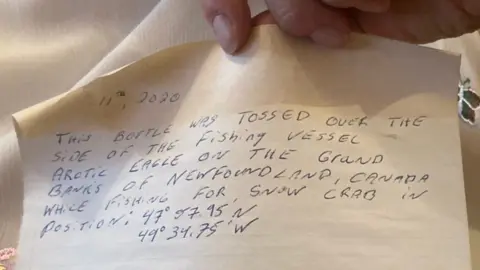 11th, 2020
THIS BOTTLE WAS TOSSED OVER THE
SIDE OF THE FISHING VESSEL
ARCTIC EAGLE ON THE GRAND
BANKS OF NEWFOUNDLAND, CANADA
WHILE FISHING FOR SNOW CRAB IN
POSITION: 47° 57.95' N
49° 34.75' W